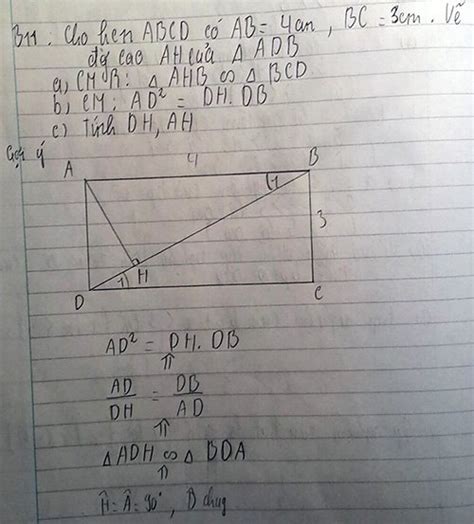 B11: Cho hcn ABCD có AB = 4cm, BC = 3cm. Vẽ
đg cao AH của △ ADB
a, CMR: △ AHB ∽ △ BCD
b, CM: AD² = DH. DB
c, Tính DH, AH
Gợi ý
4
A
B
1
3
H
1
D
C
AD² = DH. DB
⇑
AD/DH = DB/AD
△ ADH ∽ △ BDA
⇑
Ĥ = Â = 90°, D̂ chung